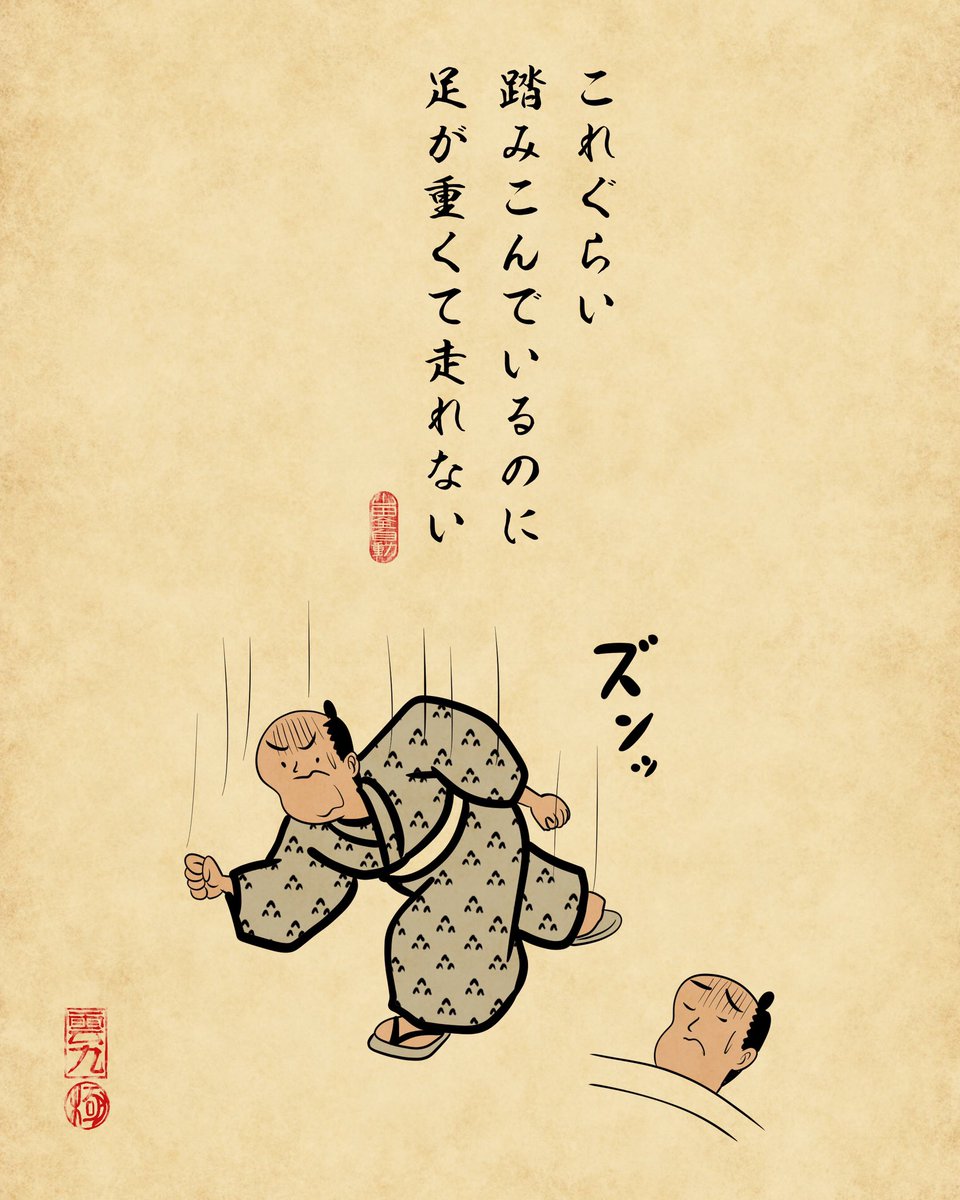 これぐらい
踏みこんでいるのに
足が重くて走れない
ズンッ